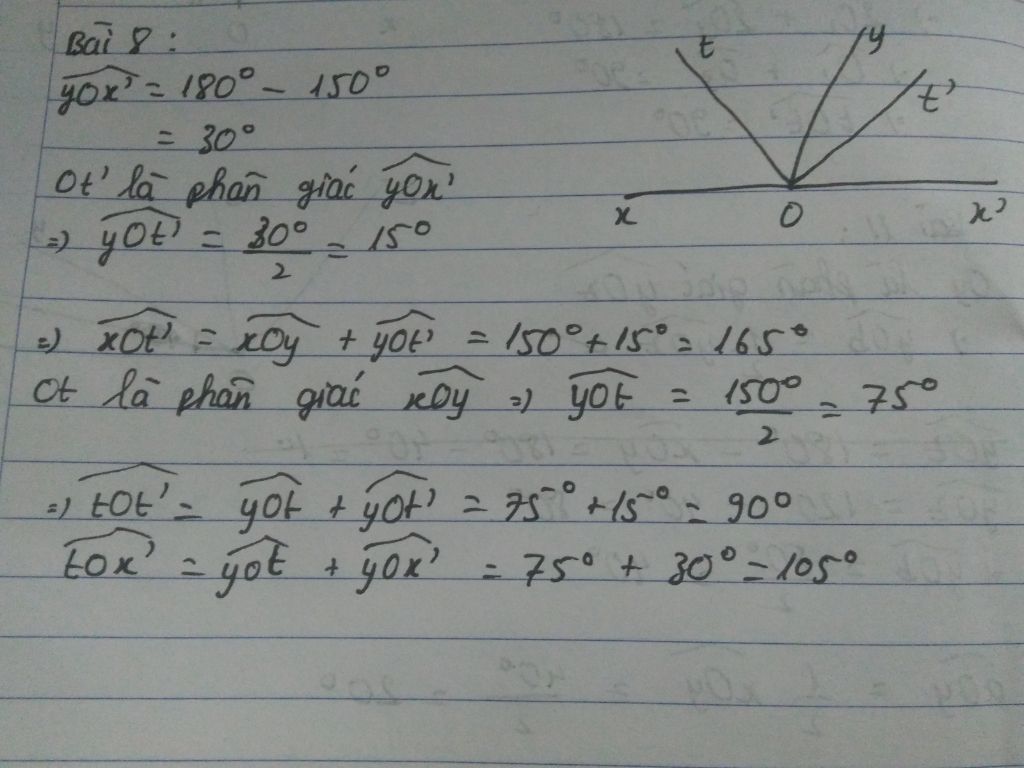 Bài 8 :
yOx' = 180° - 150°
= 30°
Ot' là phân giác yOx'
=> yOt' = 30°/2 = 15°
=> xOt' = xOy + yOt' = 150° + 15° = 165°
Ot là phân giác xOy => yOt = 150°/2 = 75°
=> tOt' = yOt + yOt' = 75° + 15° = 90°
tOx' = yOt + yOx' = 75° + 30° = 105°
t
y
t'
x
O
x'